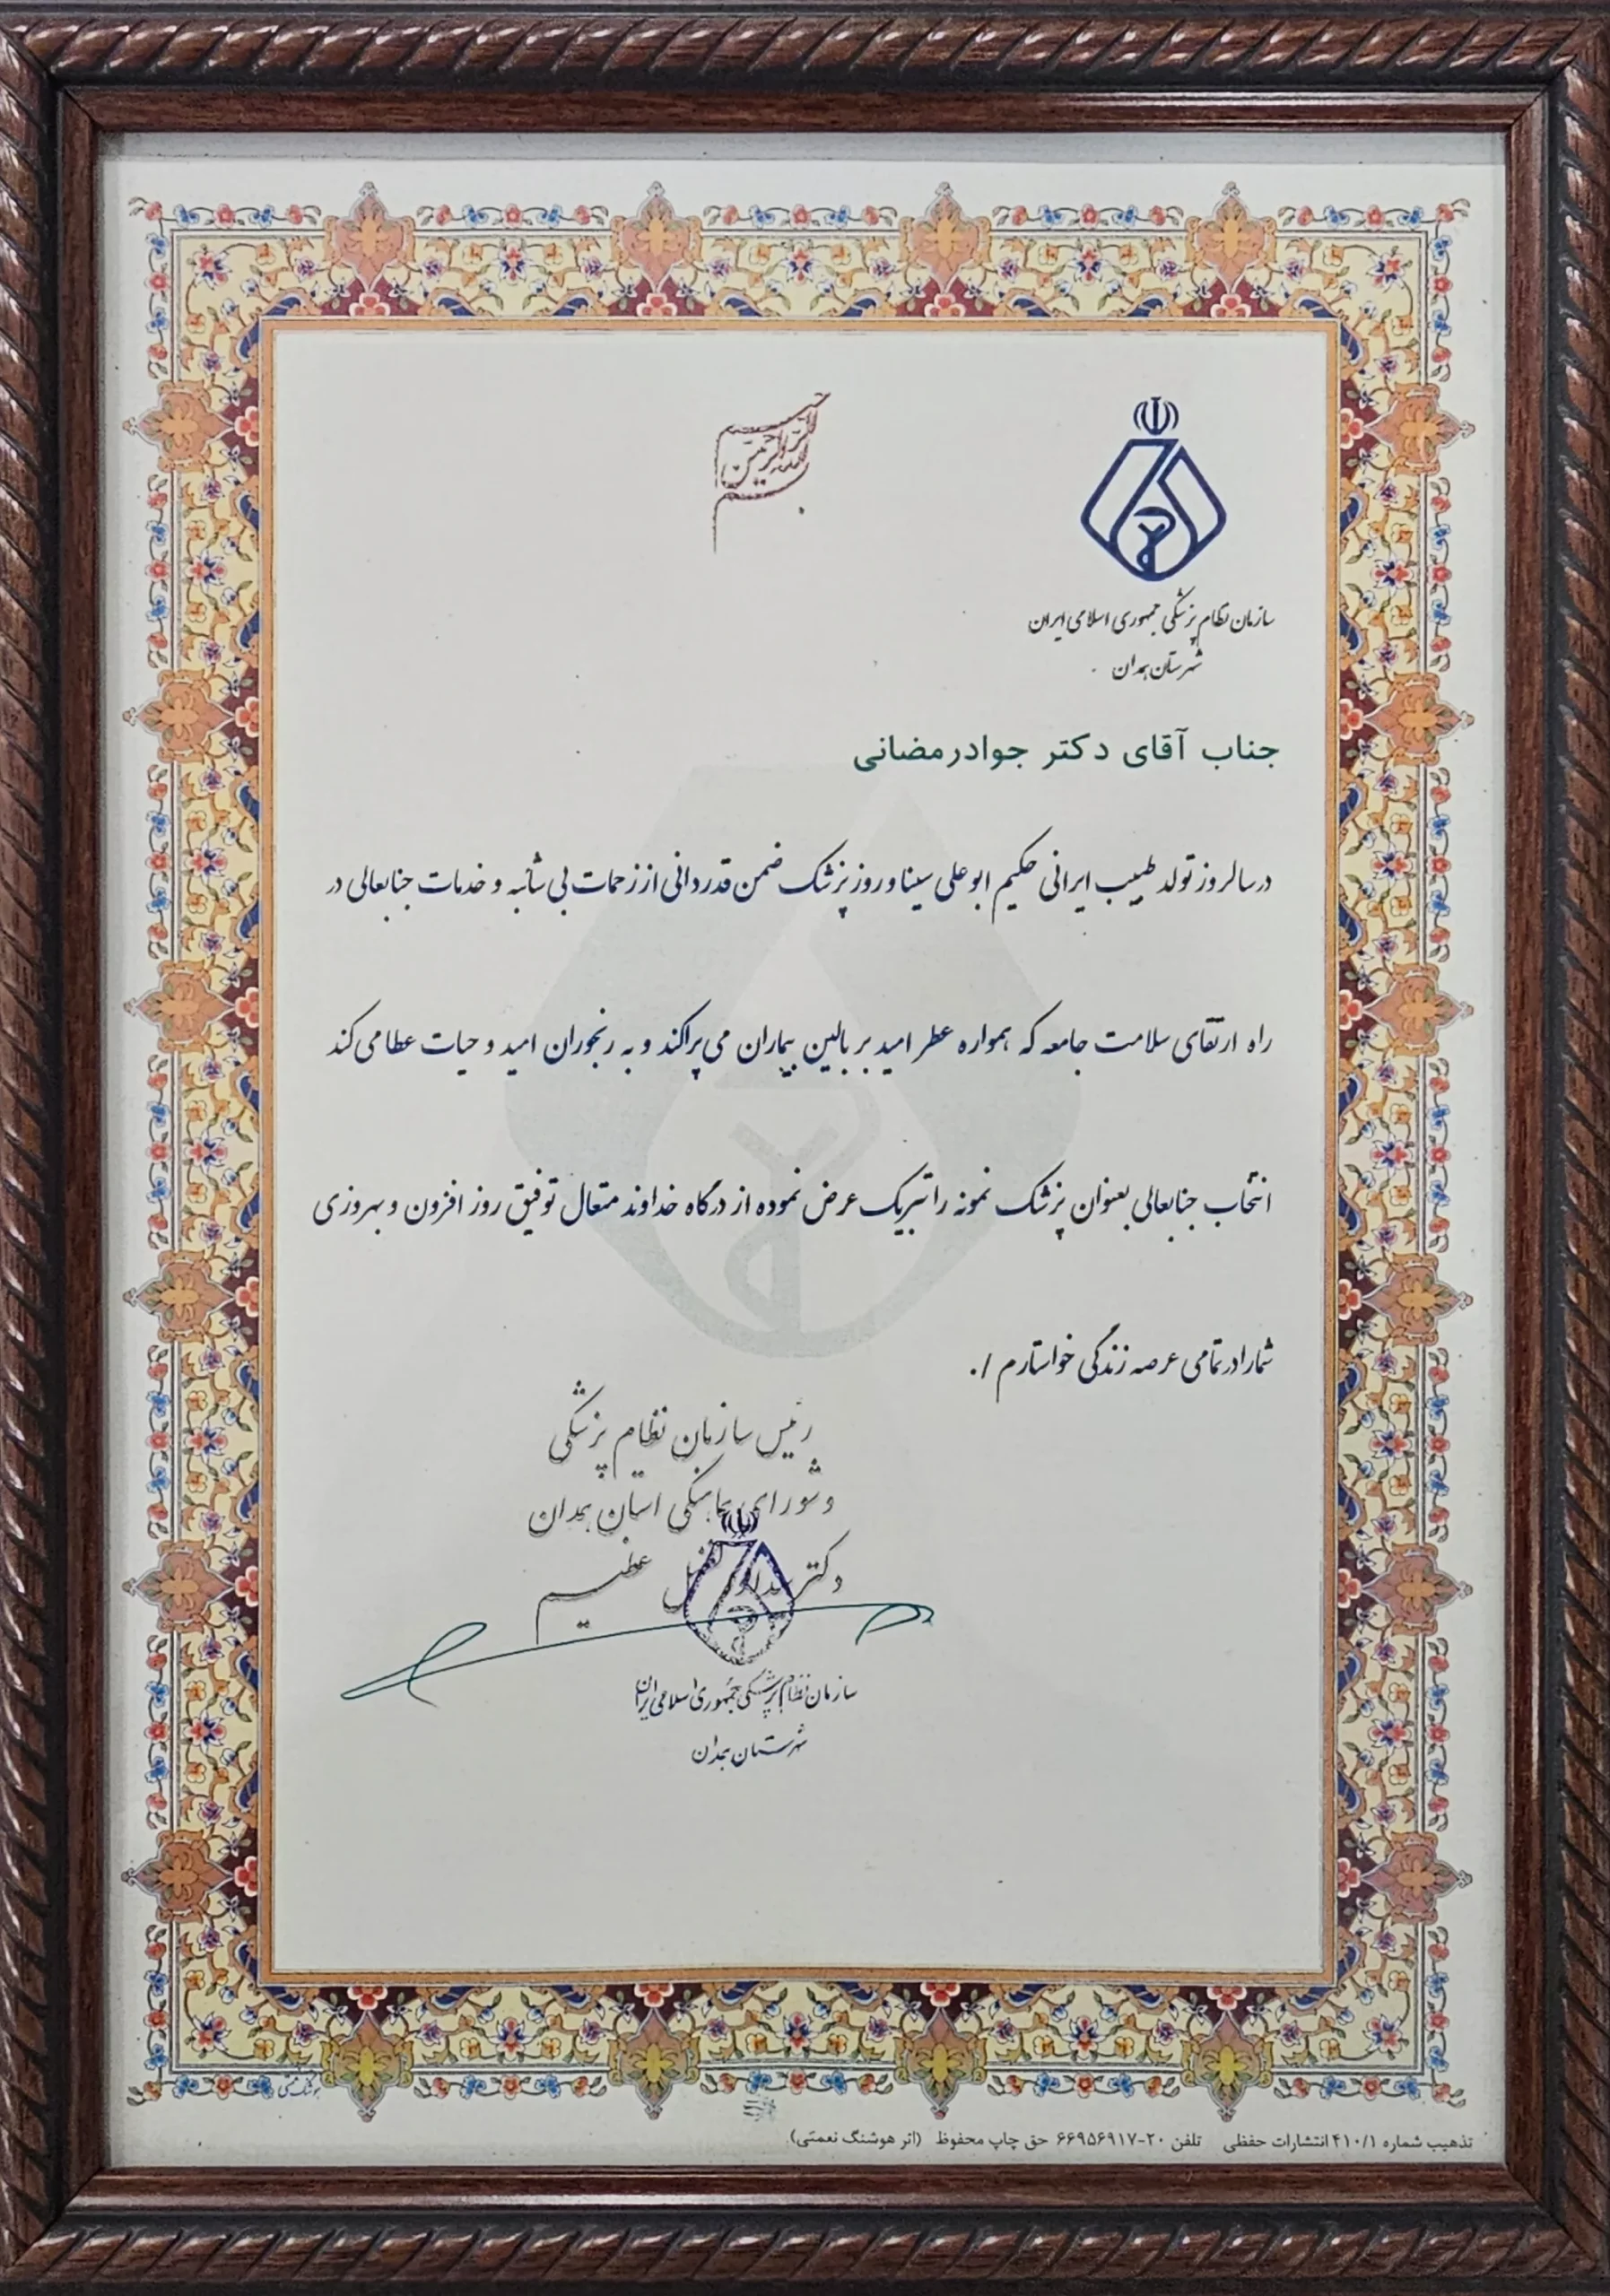 بسم الله الرحمن الرحیم
سازمان نظام پزشکی جمهوری اسلامی ایران
شهرستان همدان
جناب آقای دکتر جواد رمضانی
در سالروز تولد طبیب ایرانی حکیم ابوعلی سینا و روز پزشک ضمن قدردانی از زحمات بی شائبه و خدمات جنابعالی در
راه ارتقای سلامت جامعه که همواره عطر امید بر بالین بیماران می پراکند و به رنجوران امید و حیات عطا می کند
انتخاب جنابعالی بعنوان پزشک نمونه را تبریک عرض نموده از درگاه خداوند متعال توفیق روز افزون و بهروزی
شما را در تمامی عرصه زندگی خواستارم /.
رئیس سازمان نظام پزشکی
و شورای هماهنگی استان همدان
دکتر عظیم
سازمان نظام پزشکی جمهوری اسلامی ایران
شهرستان همدان
تذهیب شماره ۴۱۰/۱ انتشارات حفظی تلفن ۲۰-۶۶۹۵۶۹۱۷ حق چاپ محفوظ (اثر هوشنگ نعمتی).